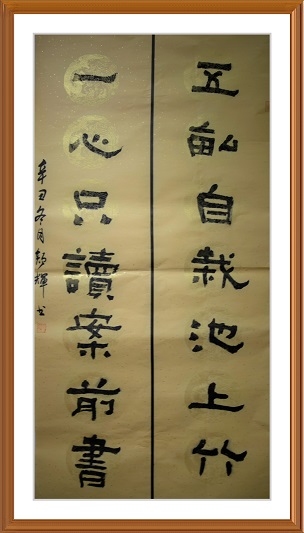 五畝自栽池上竹
一心只讀案前書
辛丑冬月
書